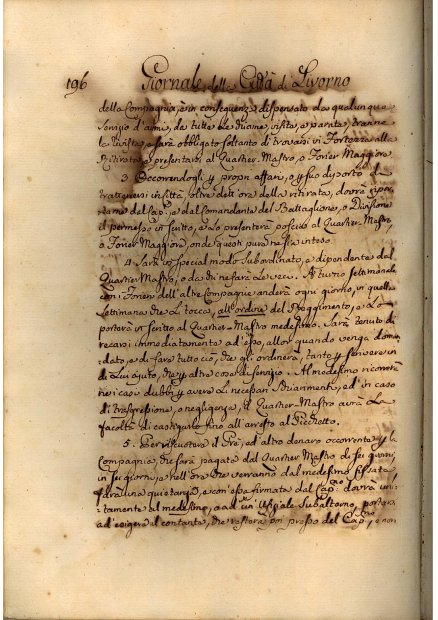 196 Giornale della Città di Livorno
della Compagnia, e in conseguenza dispensato da qualunque
servizio d'armi, da tutte le Diane, visita, e parata, tranne
le riviste, e sarà obbligato soltanto di trovarsi in Fortezza alla
Ritirata, e presentarsi al Quartier-Mastro, o Forier Maggiore
3. Occorrendogli p propri affari, o p suo diporto di
trattenersi in Città, oltre dell'ora della ritirata, dovrà
dal Cap.º, e dal Comandante del Battaglione, o Divisione
il permesso in scritto, e lo presenterà poscia al Quartier-Mastro,
o Forier Maggiore, onde questi pure ne sia inteso.
4. Sarà in special modo subordinato, e dipendente dal
Quartier Mastro, o da chi ne farà le veci. A turno settimanale
con i Forieri dell'altre Compagnie anderà ogni giorno, in quella
settimana che li tocca, all'ordine del Reggimento, e lo
porterà in scritto al Quartier-Mastro medesimo. Sarà tenuto di
recarsi immediatamente ad esso, allor quando venga doman
dato, e di fare tutto ciò, che gli ordinerà, tanto p scrivere in
di lui ajuto, che p altre cose di servizio. Al medesimo ricorrerà
nei casi dubbi p avere li necessari schiarimenti, ed in caso
di trasgressione, o negligenza, il Quartier-Mastro avrà la
facoltà di castigarlo fino all'arresto al Picchetto.
5. Per riscuotere il Prè, ed altro denaro occorrente p la
Compagnia, che sarà pagata dal Quartier Mastro di sei giorni,
in sei giorni, e nell'ora che verranno dal medesimo fissata
farà una quietanza, e con essa firmata dal Cap.no dovrà uni-
tamente al medesimo, o ad un Uffiziale Subalterno, portarsi
ad esigere il contante, che resterà poi presso del Cap.no, e non